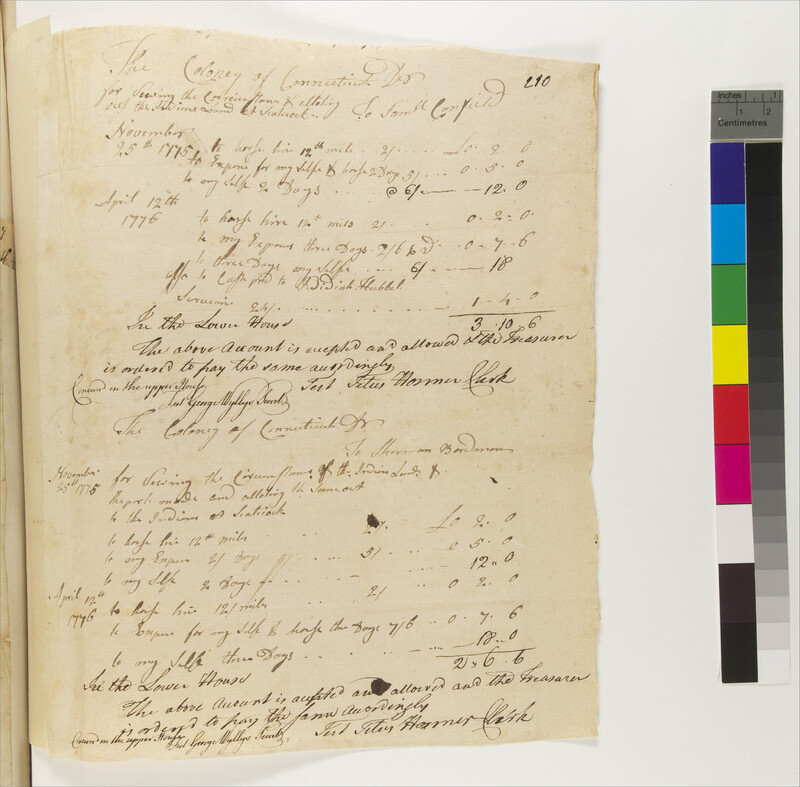 210
The Coloney of Connecticut Dr
for Viewing the Circumstans & alloting
out the Indians Land at Scatacock -. To Saml Canfield
November
25th 1775 to horse hire 12th mils .. 2/ ..... £0. 2. 0
to Expence for my Selfe & horse 2 Days 5/ ... 0. 5. 0
to my Selfe 2 Days ... @ 6/ — 12. 0
April 12th
1776 to horse hire 12th mils 2/ ..... 0. 2. 0.
to my Expenss three Days. 2/6 pr d. 0. 7. 6
to three Days my Selfe .... 6/ — 18
also to Cash pd to Jedidiah Hubbel
24/. ........ 1. 4. 0
3. 10. 6
In the Lower House
The above Account is accepted and allowed & the Treasurer
is ordered to pay the same accordingly
Test Titus Hosmer Clerk
Concurd in the upper House
Test George Wyllys Secrety
The Coloney of Connecticut Dr
To Sherman Boardman
November
25th 1775 for Viewing the Circumstans of the Indian Lands &
the and alloting the Same out
to the Indians at Scatacock
to horse hire 12th mils .. 2/. ... £0 2. 0
to my Expence 2 Days ... 5/ .... 0 5. 0
to my Selfe 2 Days ... 12.. 0
April 12th
1776 to horse hire 12 miles ... 2/ .. 0 2. 0
to Expence for my Selfe & horse the Days 7/6 .. 0. 7. 6
to my Selfe three Days ...... 18.. 0
2.. 6. 6
In the Lower House
The above Account is accepted and allowed and the Treasurer
is ordered to pay the same accordingly
Test Titus Hosmer Clerk
Concurd in the upper House
Test George Wyllys Secrety
Inches 1
1 2
Centimetres